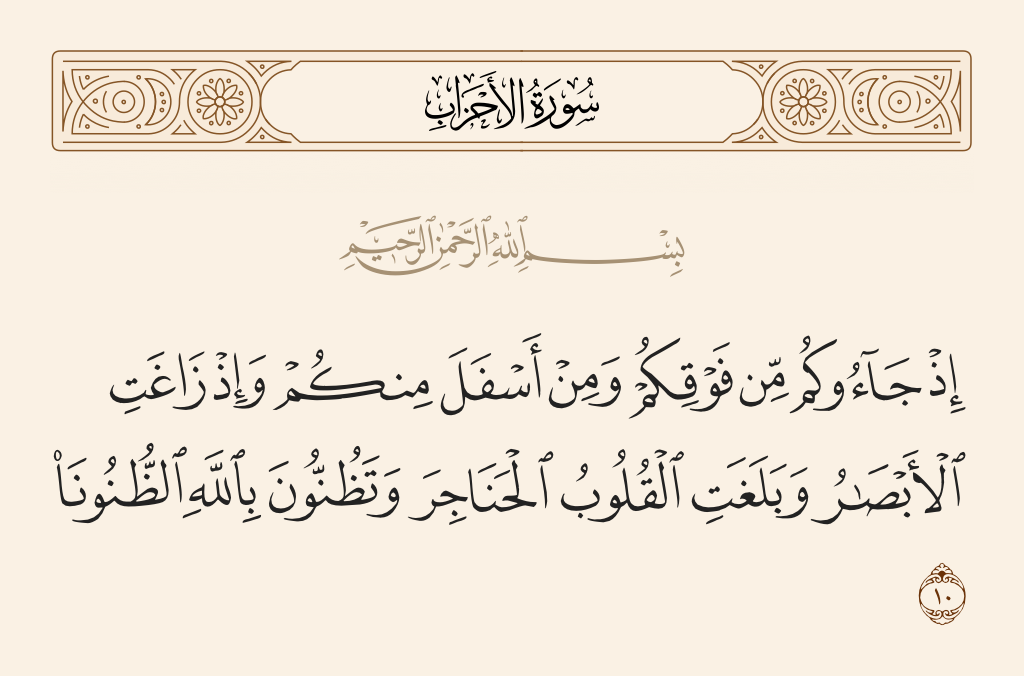 سُورَةُ الأَحْزَابِ
بِسْمِ ٱللَّهِ ٱلرَّحْمَٰنِ ٱلرَّحِيمِ
إِذْ جَآءُوكُم مِّن فَوْقِكُمْ وَمِنْ أَسْفَلَ مِنكُمْ وَإِذْ زَاغَتِ
ٱلْأَبْصَٰرُ وَبَلَغَتِ ٱلْقُلُوبُ ٱلْحَنَاجِرَ وَتَظُنُّونَ بِٱللَّهِ ٱلظُّنُونَا۠
١٠